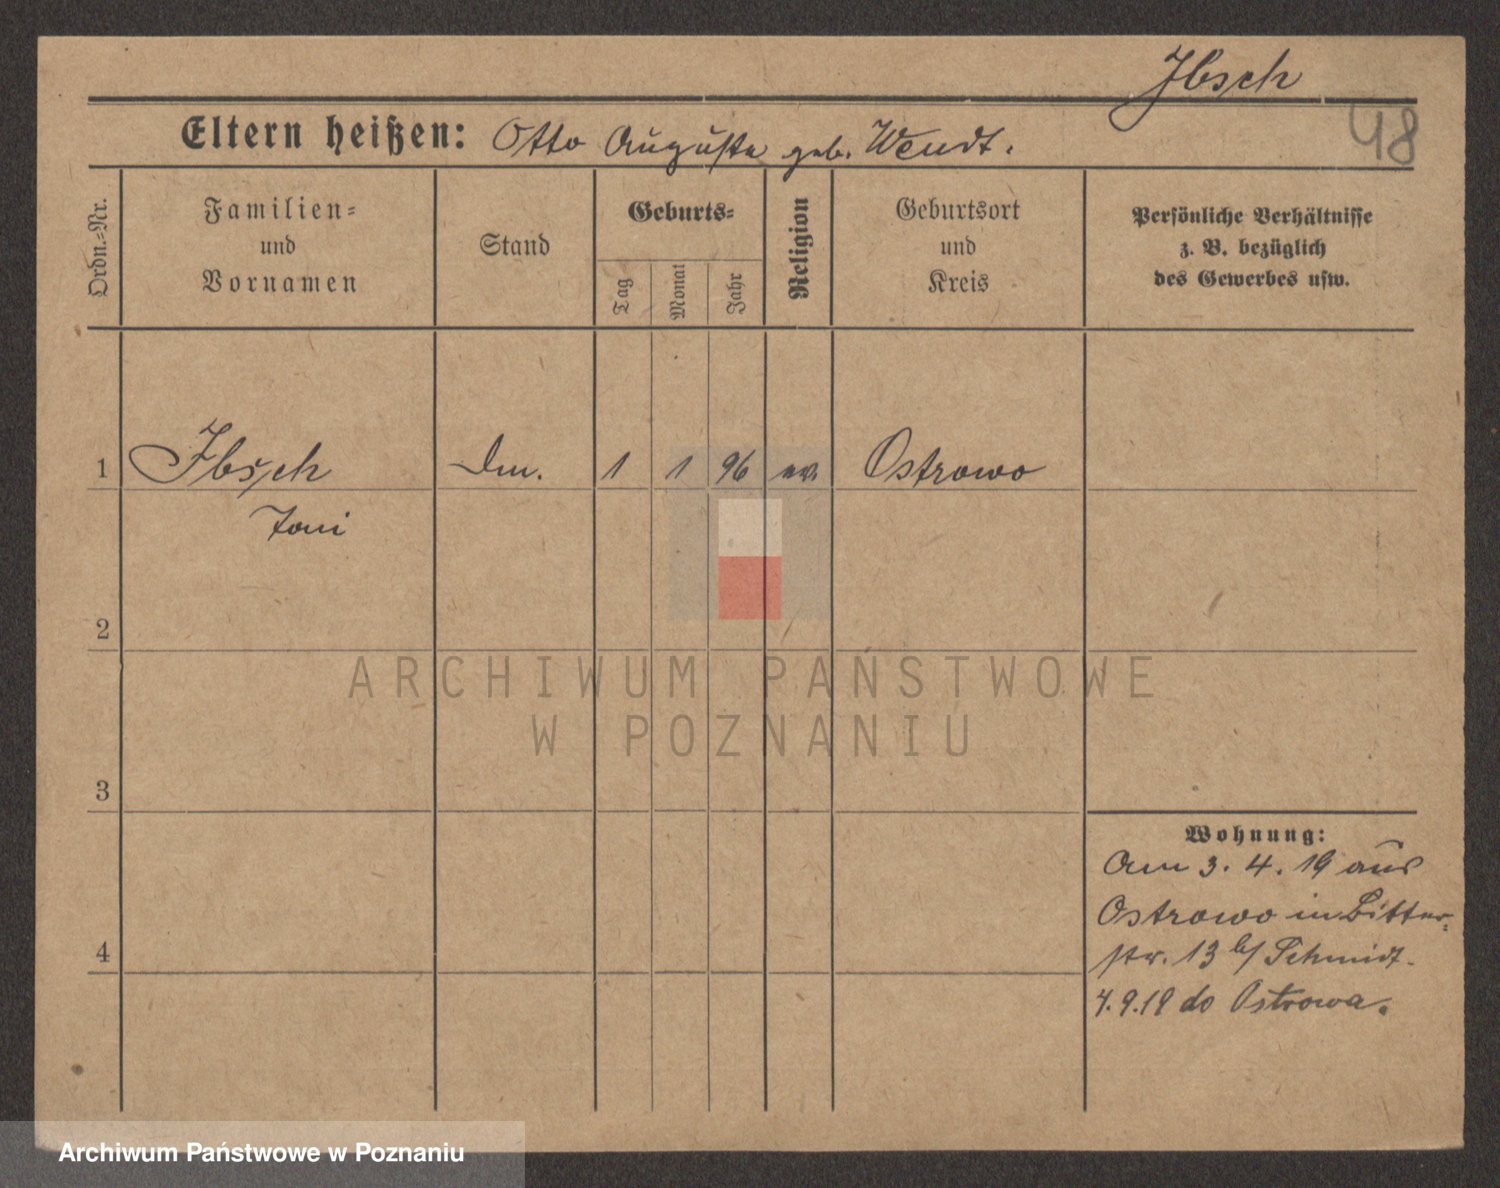 Ibsch
48
Eltern heißen: Otto Auguste geb. Wendt.
Ordn.-Nr.
Familien- und Vornamen
Stand
Geburts-
Tag
Monat
Jahr
Religion
Geburtsort und Kreis
Persönliche Verhältnisse
z. B. bezüglich
des Gewerbes usw.
1 Ibsch 1 1 96 ev. Ostrowo
Toni
2
3
4
Wohnung:
Am 3. 4. 19 aus
Ostrowo in Bitter-
str. 13 b/ Schmidt.
4.9.19 do Ostrowa.
ARCHIWUM PAŃSTWOWE
W POZNANIU
Archiwum Państwowe w Poznaniu